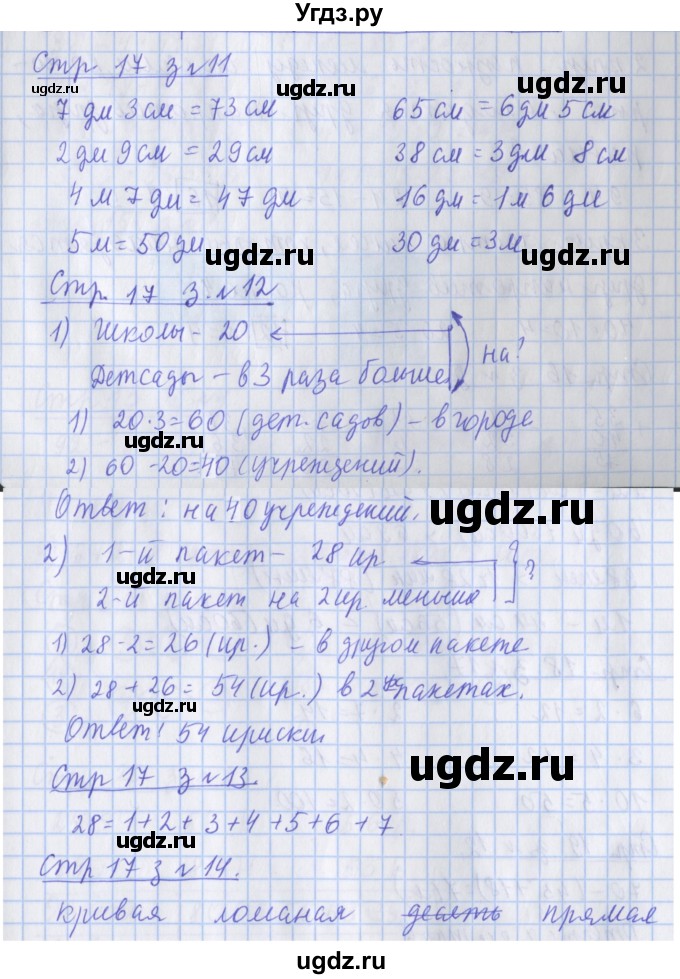 Угдз.ру
Стр 17 з №11
7 дм 3 см = 73 см 65 см = 6 дм 5 см
2 дм 9 см = 29 см 38 см = 3 дм 8 см
4 м 7 дм = 47 дм 16 дм = 1 м 6 дм
5 м = 50 дм 30 дм = 3 м
ugdz.ru ugdz.ru
Стр. 17 з. №12
1) Школы - 20 на?
ugdz.ru
Детсады - в 3 раза больше
1) 20·3=60 (дет. садов) - в городе
ugdz.ru
2) 60-20=40 (учреждений).
Ответ: на 40 учреждений. ugdz.ru
2) 1-й пакет - 28 ир ?
ugdz.ru
2-й пакет на 2 ир меньше
1) 28-2=26 (ир.) - в другом пакете
2) 28+26= 54 (ир.) в 2ух пакетах.
ugdz.ru
Ответ: 54 ириски.
Стр 17 з №13. ugdz.ru
28=1+2+3+4+5+6+7.
ugdz.ru
Стр 17 з №14.
кривая ломаная десять прямая
ugdz.ru ugdz.ru